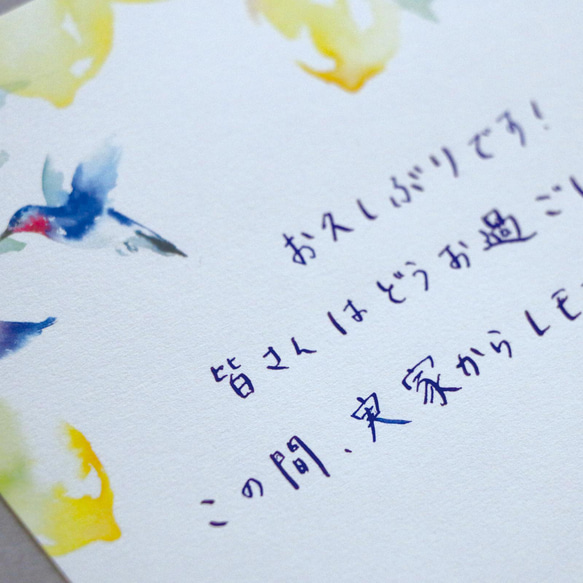 お久しぶりです!
皆さんはどうお過ごし
この間、実家からレモ